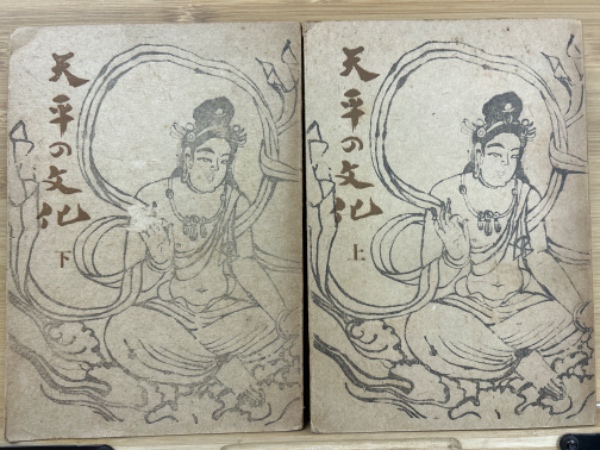 天平の文化
下
天平の文化
上